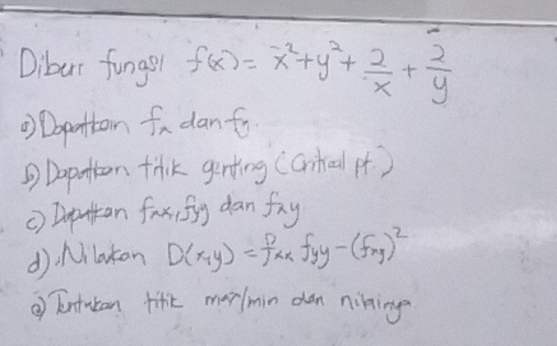 Diberi fungsi f(x) = x²+y²+ 2/x + 2/y
a) Dapatkan fx dan fy.
b) Dapatkan titik genting (Critical pt.)
c) Dapatkan fxx, fyy dan fxy.
d) Nilaikan D(x,y) = fxx fyy - (fxy)²
e) Tentukan titik max/min dan nilainya